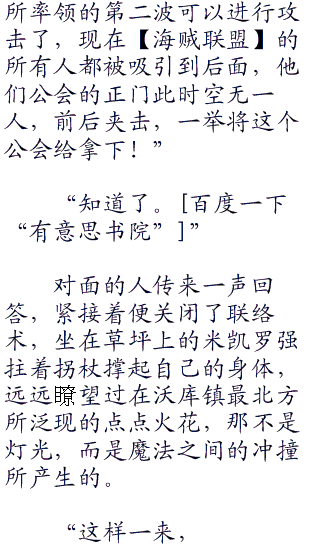 所率领的第二波可以进行攻
击了，现在【海贼联盟】的
所有人都被吸引到后面，他
们公会的正门此时空无一
人，前后夹击，一举将这个
公会给拿下！”
“知道了。[百度一下
“有意思书院”]”
对面的人传来一声回
答，紧接着便关闭了联络
术，坐在草坪上的米凯罗强
拄着拐杖撑起自己的身体，
远远瞭望过在沃库镇最北方
所泛现的点点火花，那不是
灯光，而是魔法之间的冲撞
所产生的。
“这样一来，